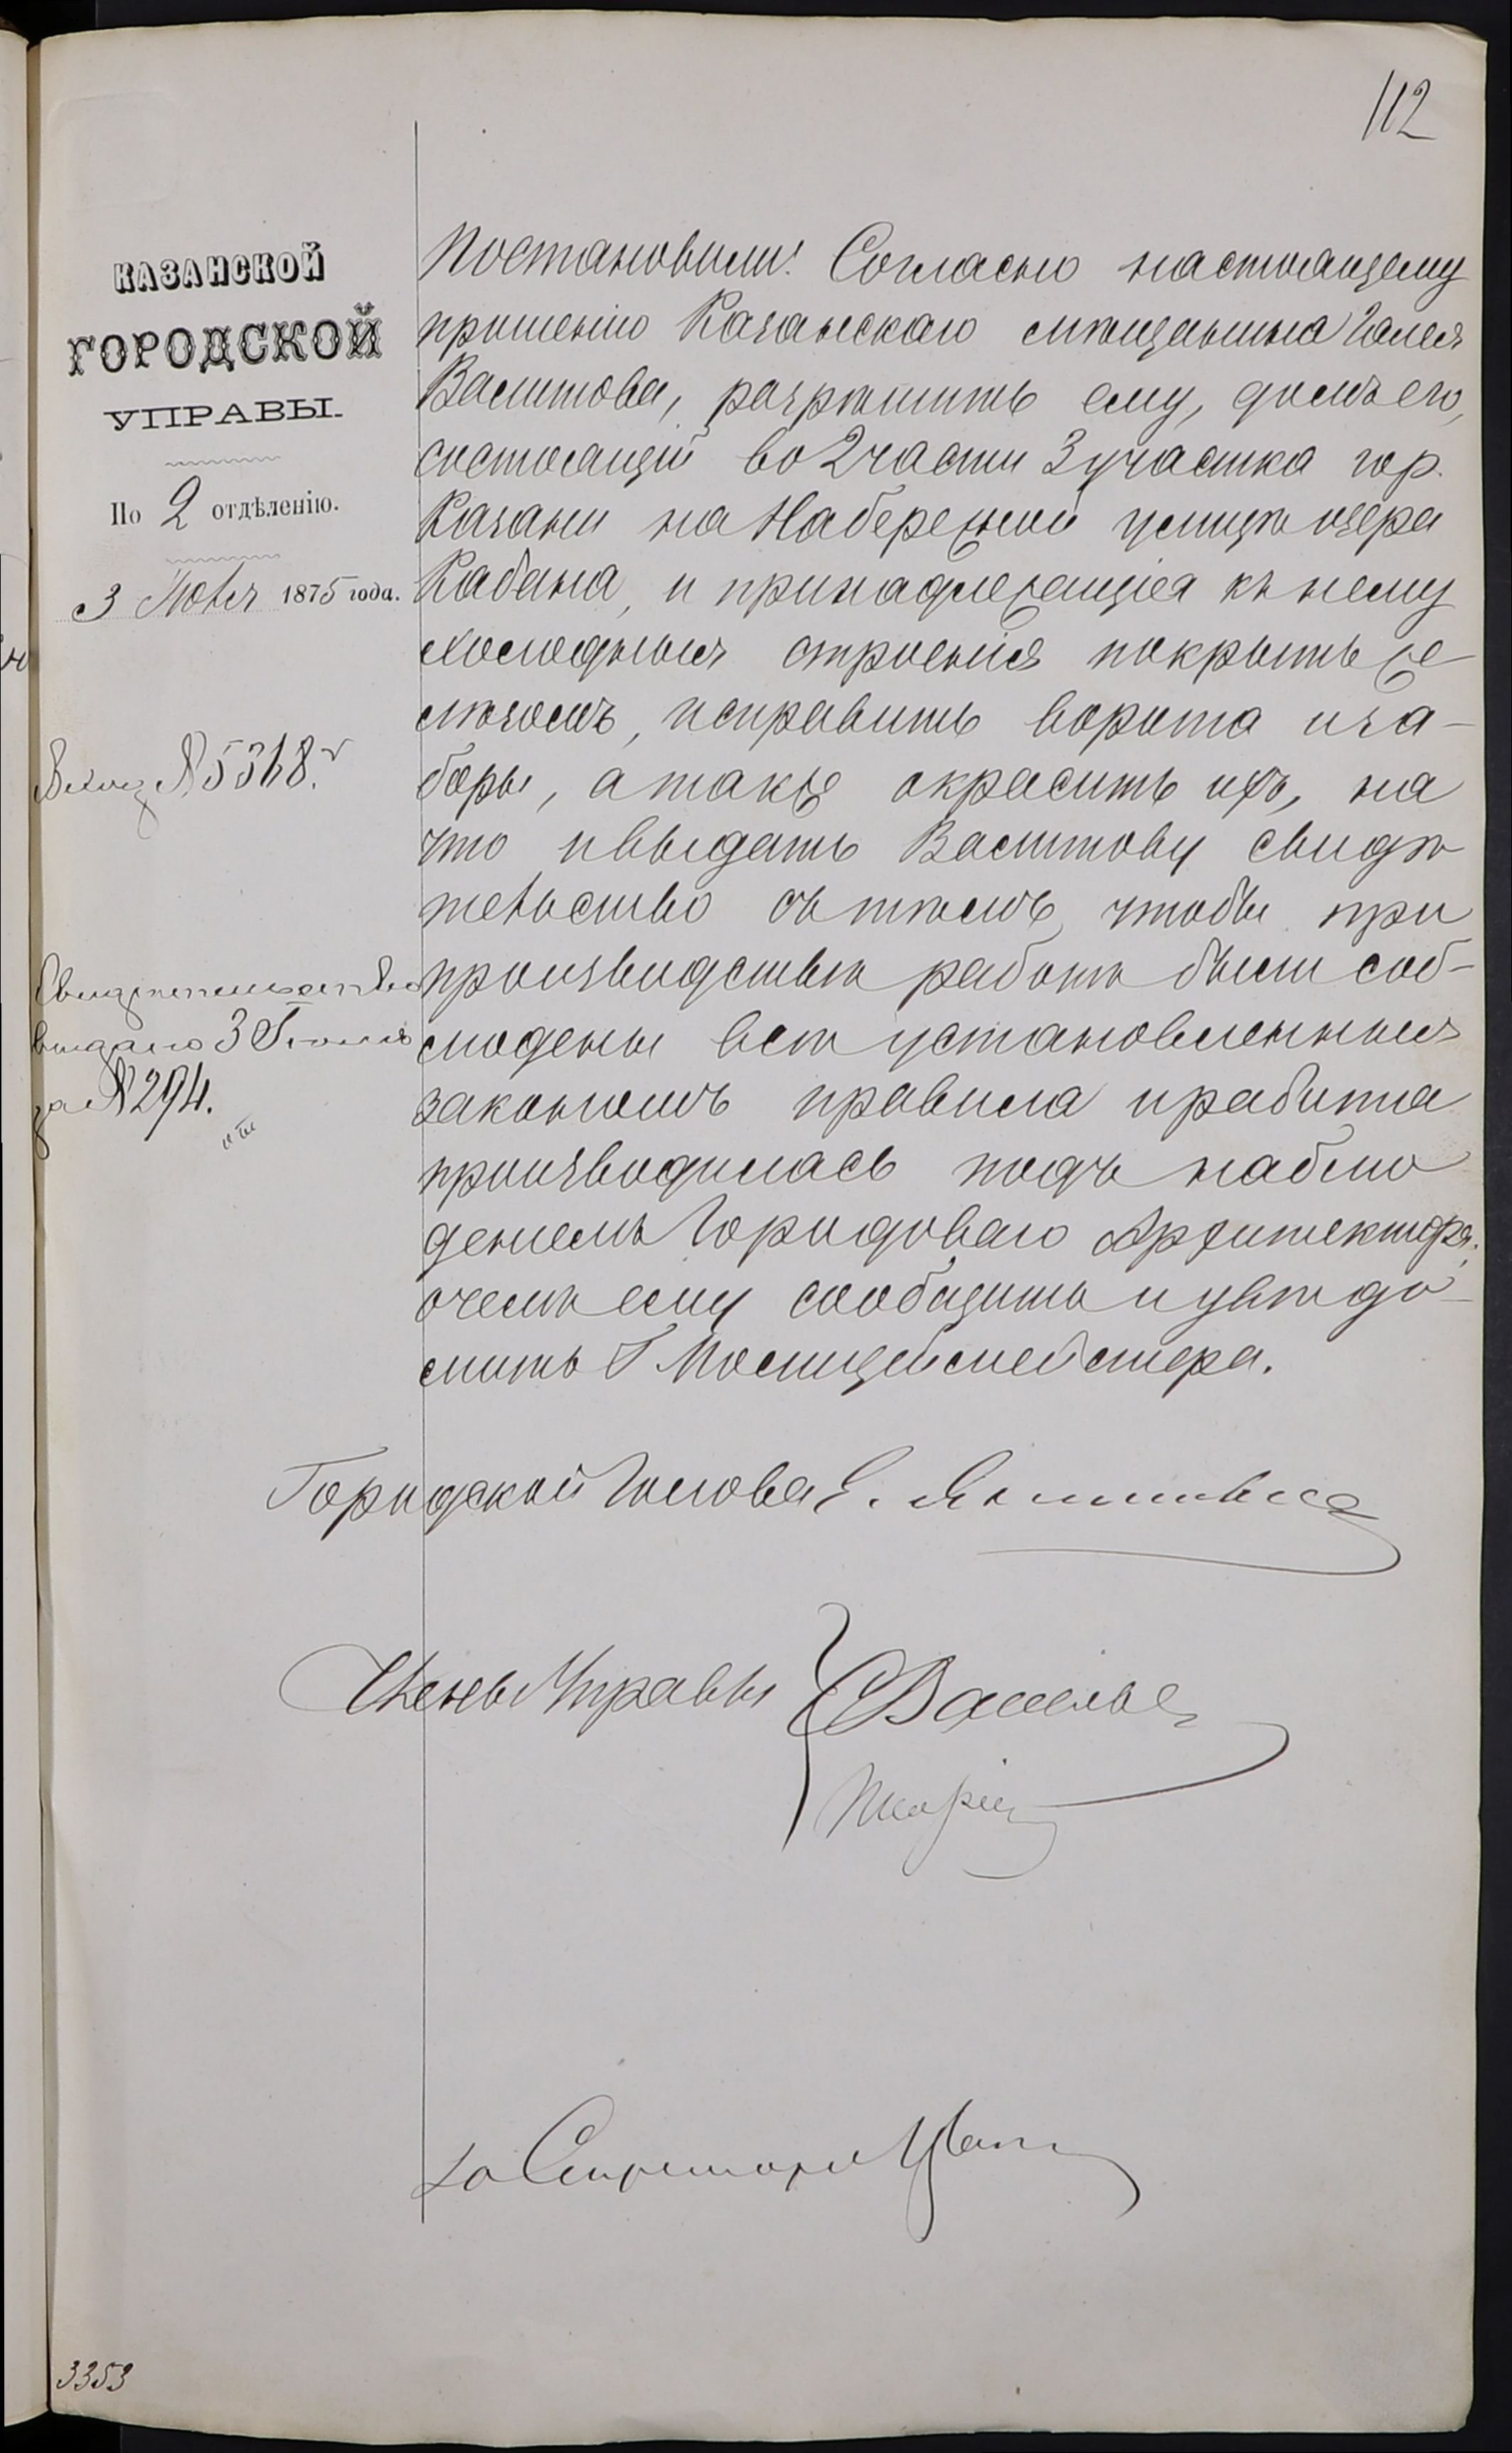 112
КАЗАНСКОЙ
ГОРОДСКОЙ
УПРАВЫ.
По 2 отдѣленію.
3 Іюля 1875 года.
Исход № 5318.
Свидѣтельство
выдано 3 Іюля
за № 294.
Постановили: Согласно настоящему
прошенію Казанскаго мѣщанина Галея
Валитова, разрѣшить ему, домъ его,
состоящій во 2 части 3 участка гор.
Казани на Набережной улицѣ озера
Кабана, и принадлежащія къ нему
холодныя строенія покрыть же-
лѣзомъ, исправить ворота и за-
боры, а также окрасить ихъ, на
что и выдать Валитову свидѣ
тельство съ тѣмъ, чтобы при
производствѣ работъ были соб-
людены всѣ установленныя
закономъ правила и работа
производилась подъ наблю
деніемъ Городоваго Архитектора,
о чемъ ему сообщить и увѣдо-
мить Г Полицеймейстера.
Городской Голова Е.
Члены Управы
Секретаря
3353